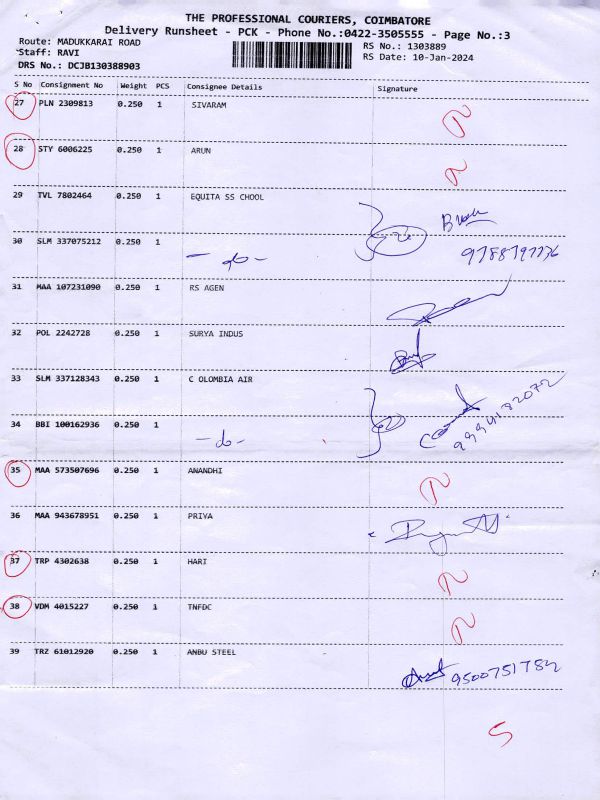 THE PROFESSIONAL COURIERS, COIMBATORE
Delivery Runsheet - PCK - Phone No.:0422-3505555 - Page No.:3
Route: MADUKKARAI ROAD
Staff: RAVI
DRS No.: DCJB130388903
RS No.: 1303889
RS Date: 10-Jan-2024
S No Consignment No Weight PCS Consignee Details Signature
27 PLN 2309813 0.250 1 SIVARAM
28 STY 6006225 0.250 1 ARUN
29 TVL 7802464 0.250 1 EQUITA SS CHOOL
30 SLM 337075212 0.250 1 -do-
31 MAA 107231090 0.250 1 RS AGEN
32 POL 2242728 0.250 1 SURYA INDUS
33 SLM 337128343 0.250 1 C OLOMBIA AIR
34 BBI 100162936 0.250 1 -do-
35 MAA 573507696 0.250 1 ANANDHI
36 MAA 943678951 0.250 1 PRIYA
37 TRP 4302638 0.250 1 HARI
38 VDM 4015227 0.250 1 TNFDC
39 TRZ 61012920 0.250 1 ANBU STEEL
9500751784
5